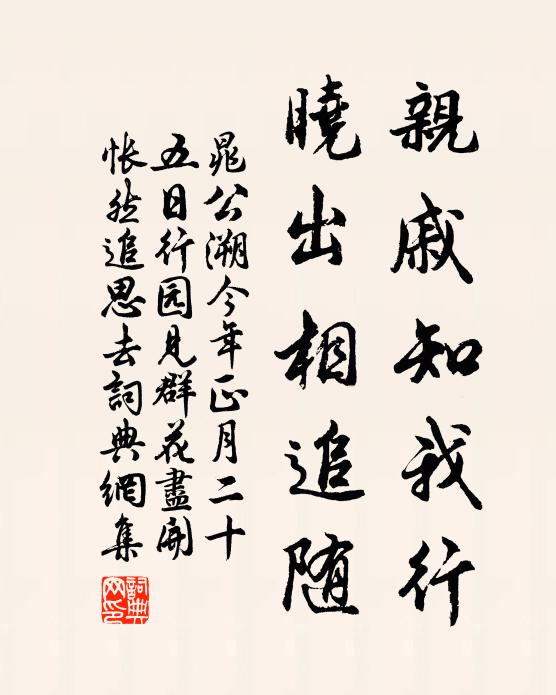 親戚知我行
曉出相追随
晁公溯今年正月二十
五日行园見群花盡開
怅然追思去詞典網集
詞典網印